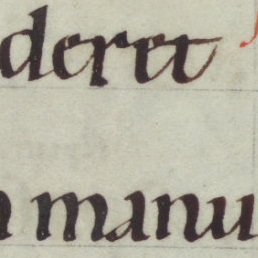 deret
manu